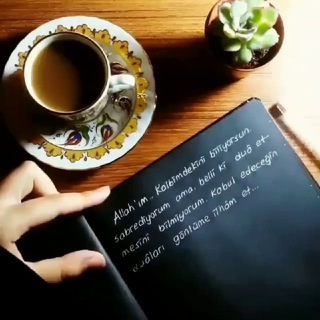 Allah'ım. Kalbimdekini biliyorsun.
sabrediyorum ama, belli ki dua et-
mesini bilmiyorum. Kabul edeceğin
duâları gönlüme ilhâm et...